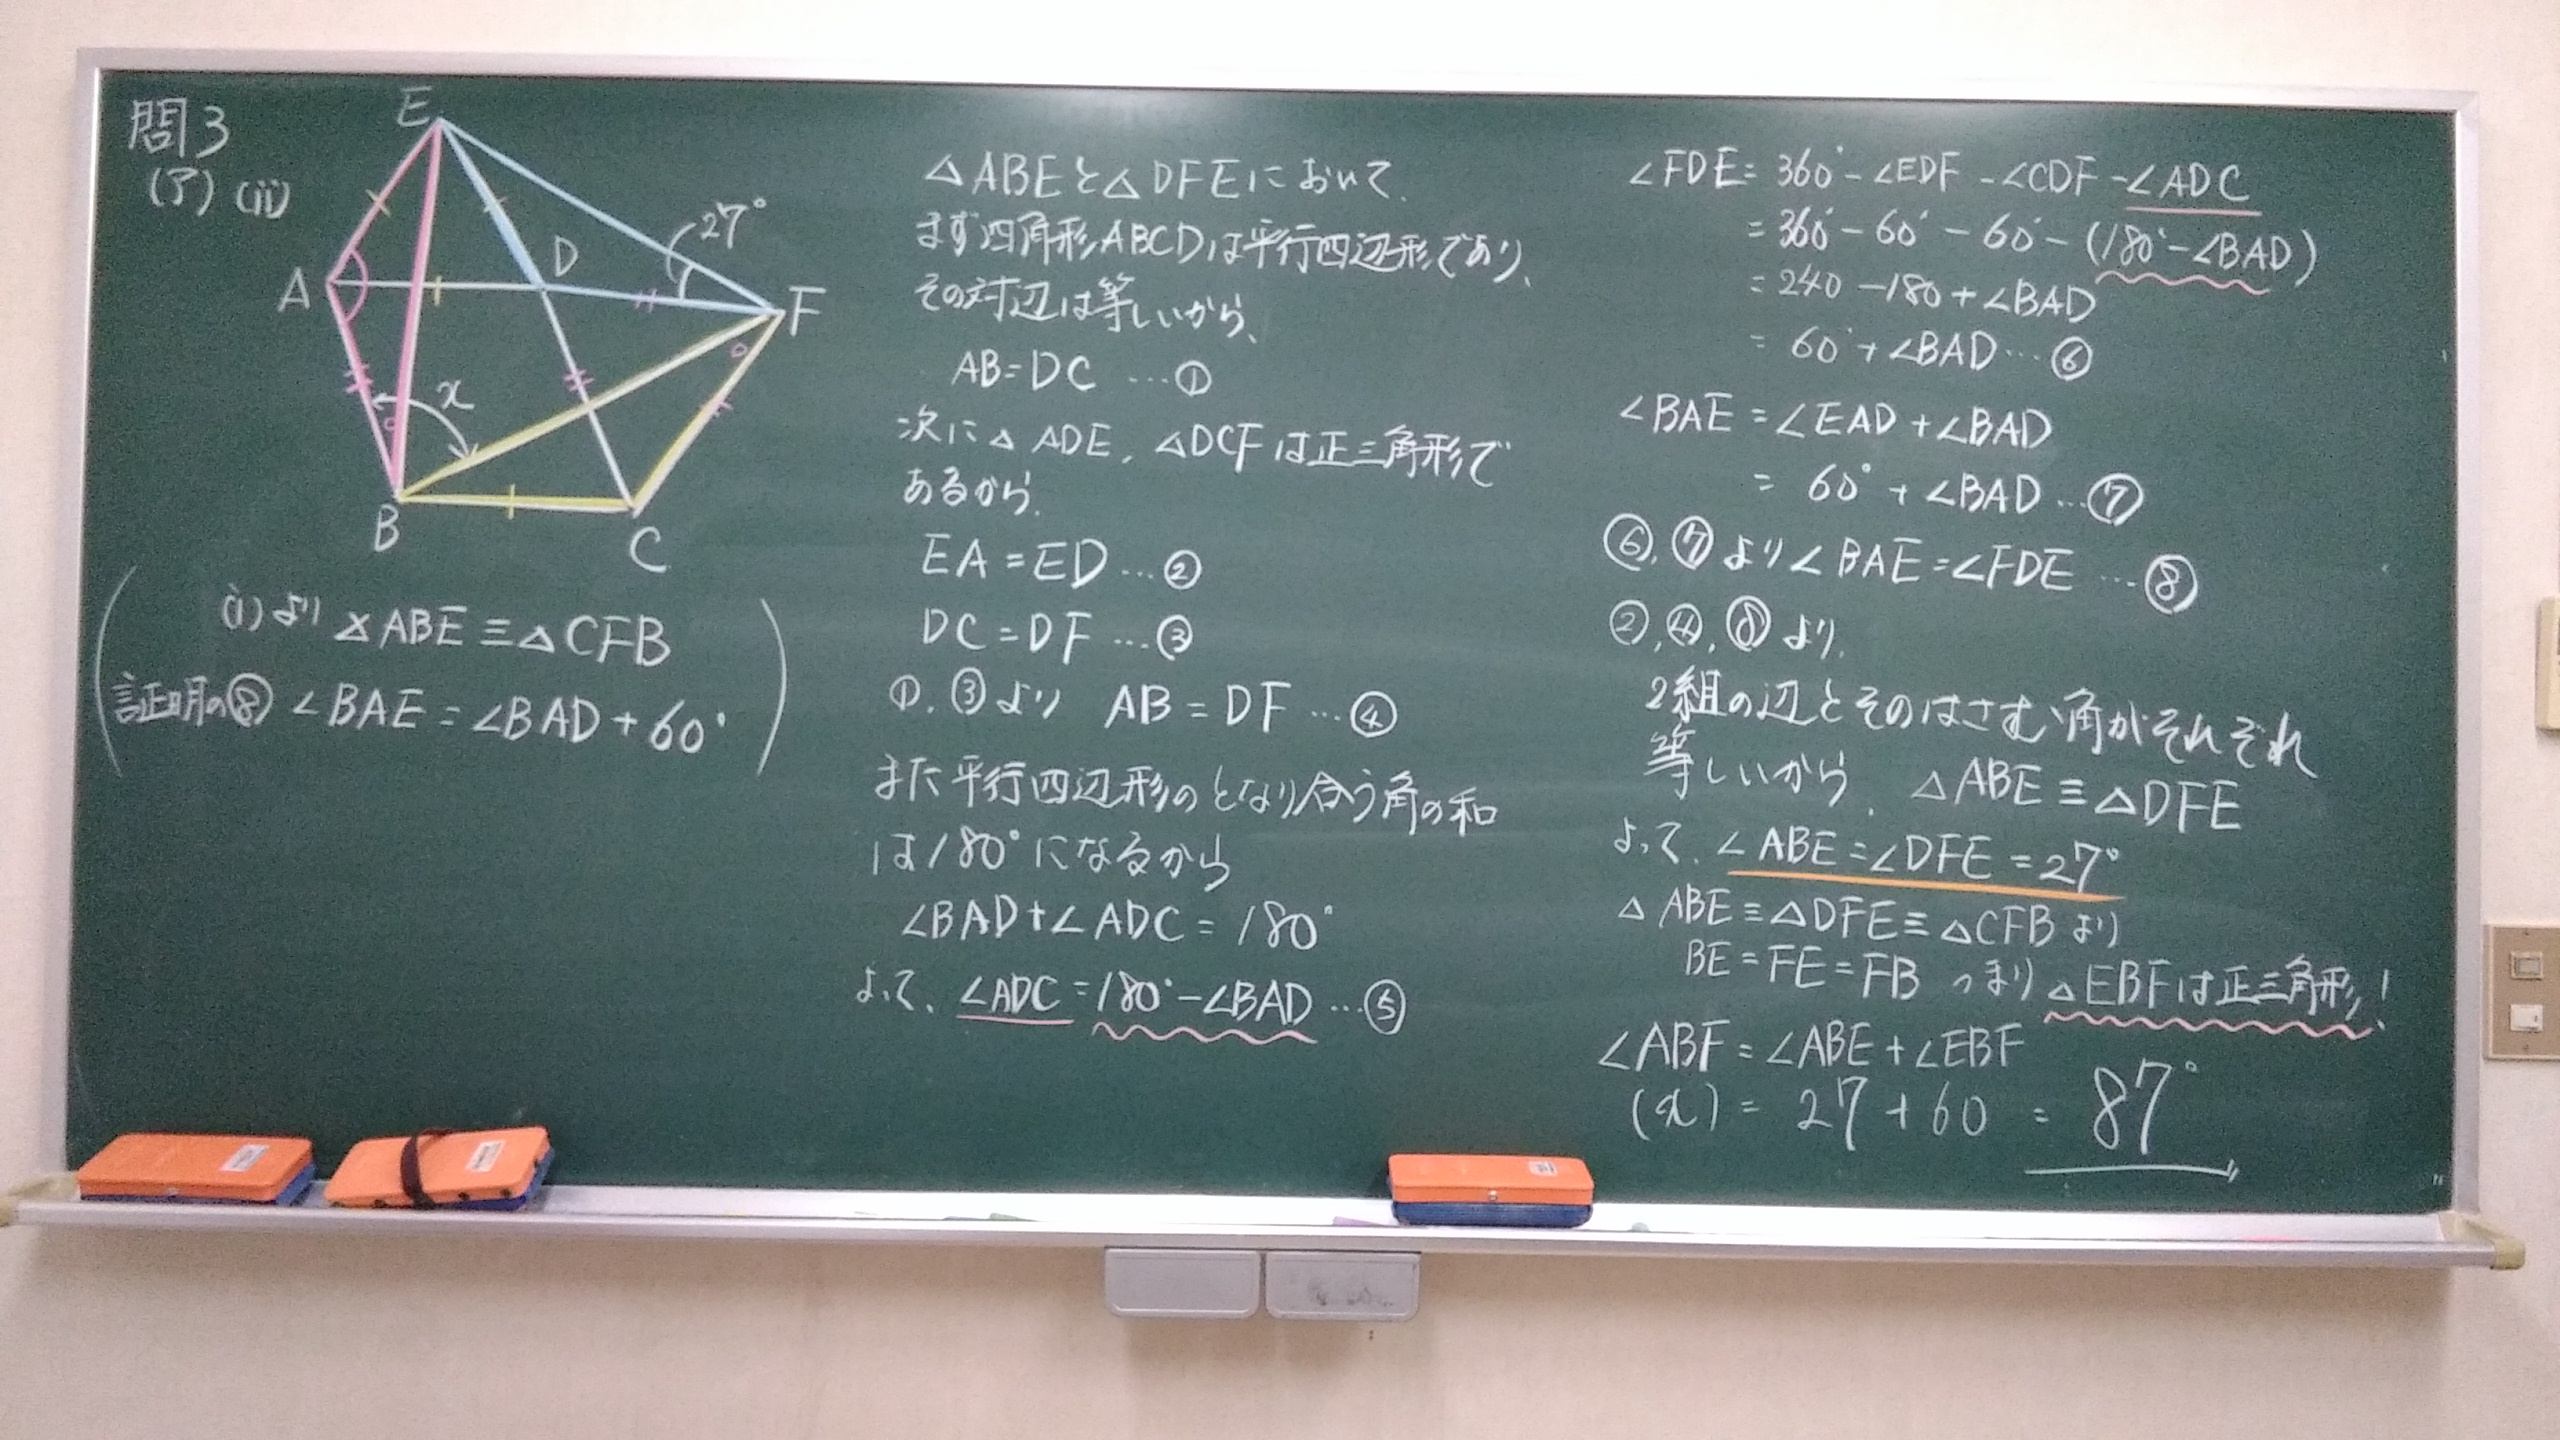 問3
(ア)(ii)
E
27°
D
A
F
x
B
C
(i)より △ABE≡△CFB
証明の⑧ ∠BAE=∠BAD+60°
△ABEと△DFEにおいて、
まず四角形ABCDは平行四辺形であり、
その対辺は等しいから、
AB=DC …①
次に△ADE、△DCFは正三角形で
あるから、
EA=ED …②
DC=DF …③
①、③より AB=DF …④
また平行四辺形のとなり合う角の和
は180°になるから
∠BAD+∠ADC=180°
よって、∠ADC=180°-∠BAD …⑤
∠FDE=360°-∠EDF-∠CDF-∠ADC
=360°-60°-60°-(180°-∠BAD)
=240-180+∠BAD
=60°+∠BAD …⑥
∠BAE=∠EAD+∠BAD
=60°+∠BAD …⑦
⑥、⑦より∠BAE=∠FDE …⑧
②、④、⑧より、
2組の辺とそのはさむ角がそれぞれ
等しいから、△ABE≡△DFE
よって、∠ABE=∠DFE=27°
△ABE≡△DFE≡△CFBより
BE=FE=FB つまり△EBFは正三角形!
∠ABF=∠ABE+∠EBF
(x)=27+60=87°